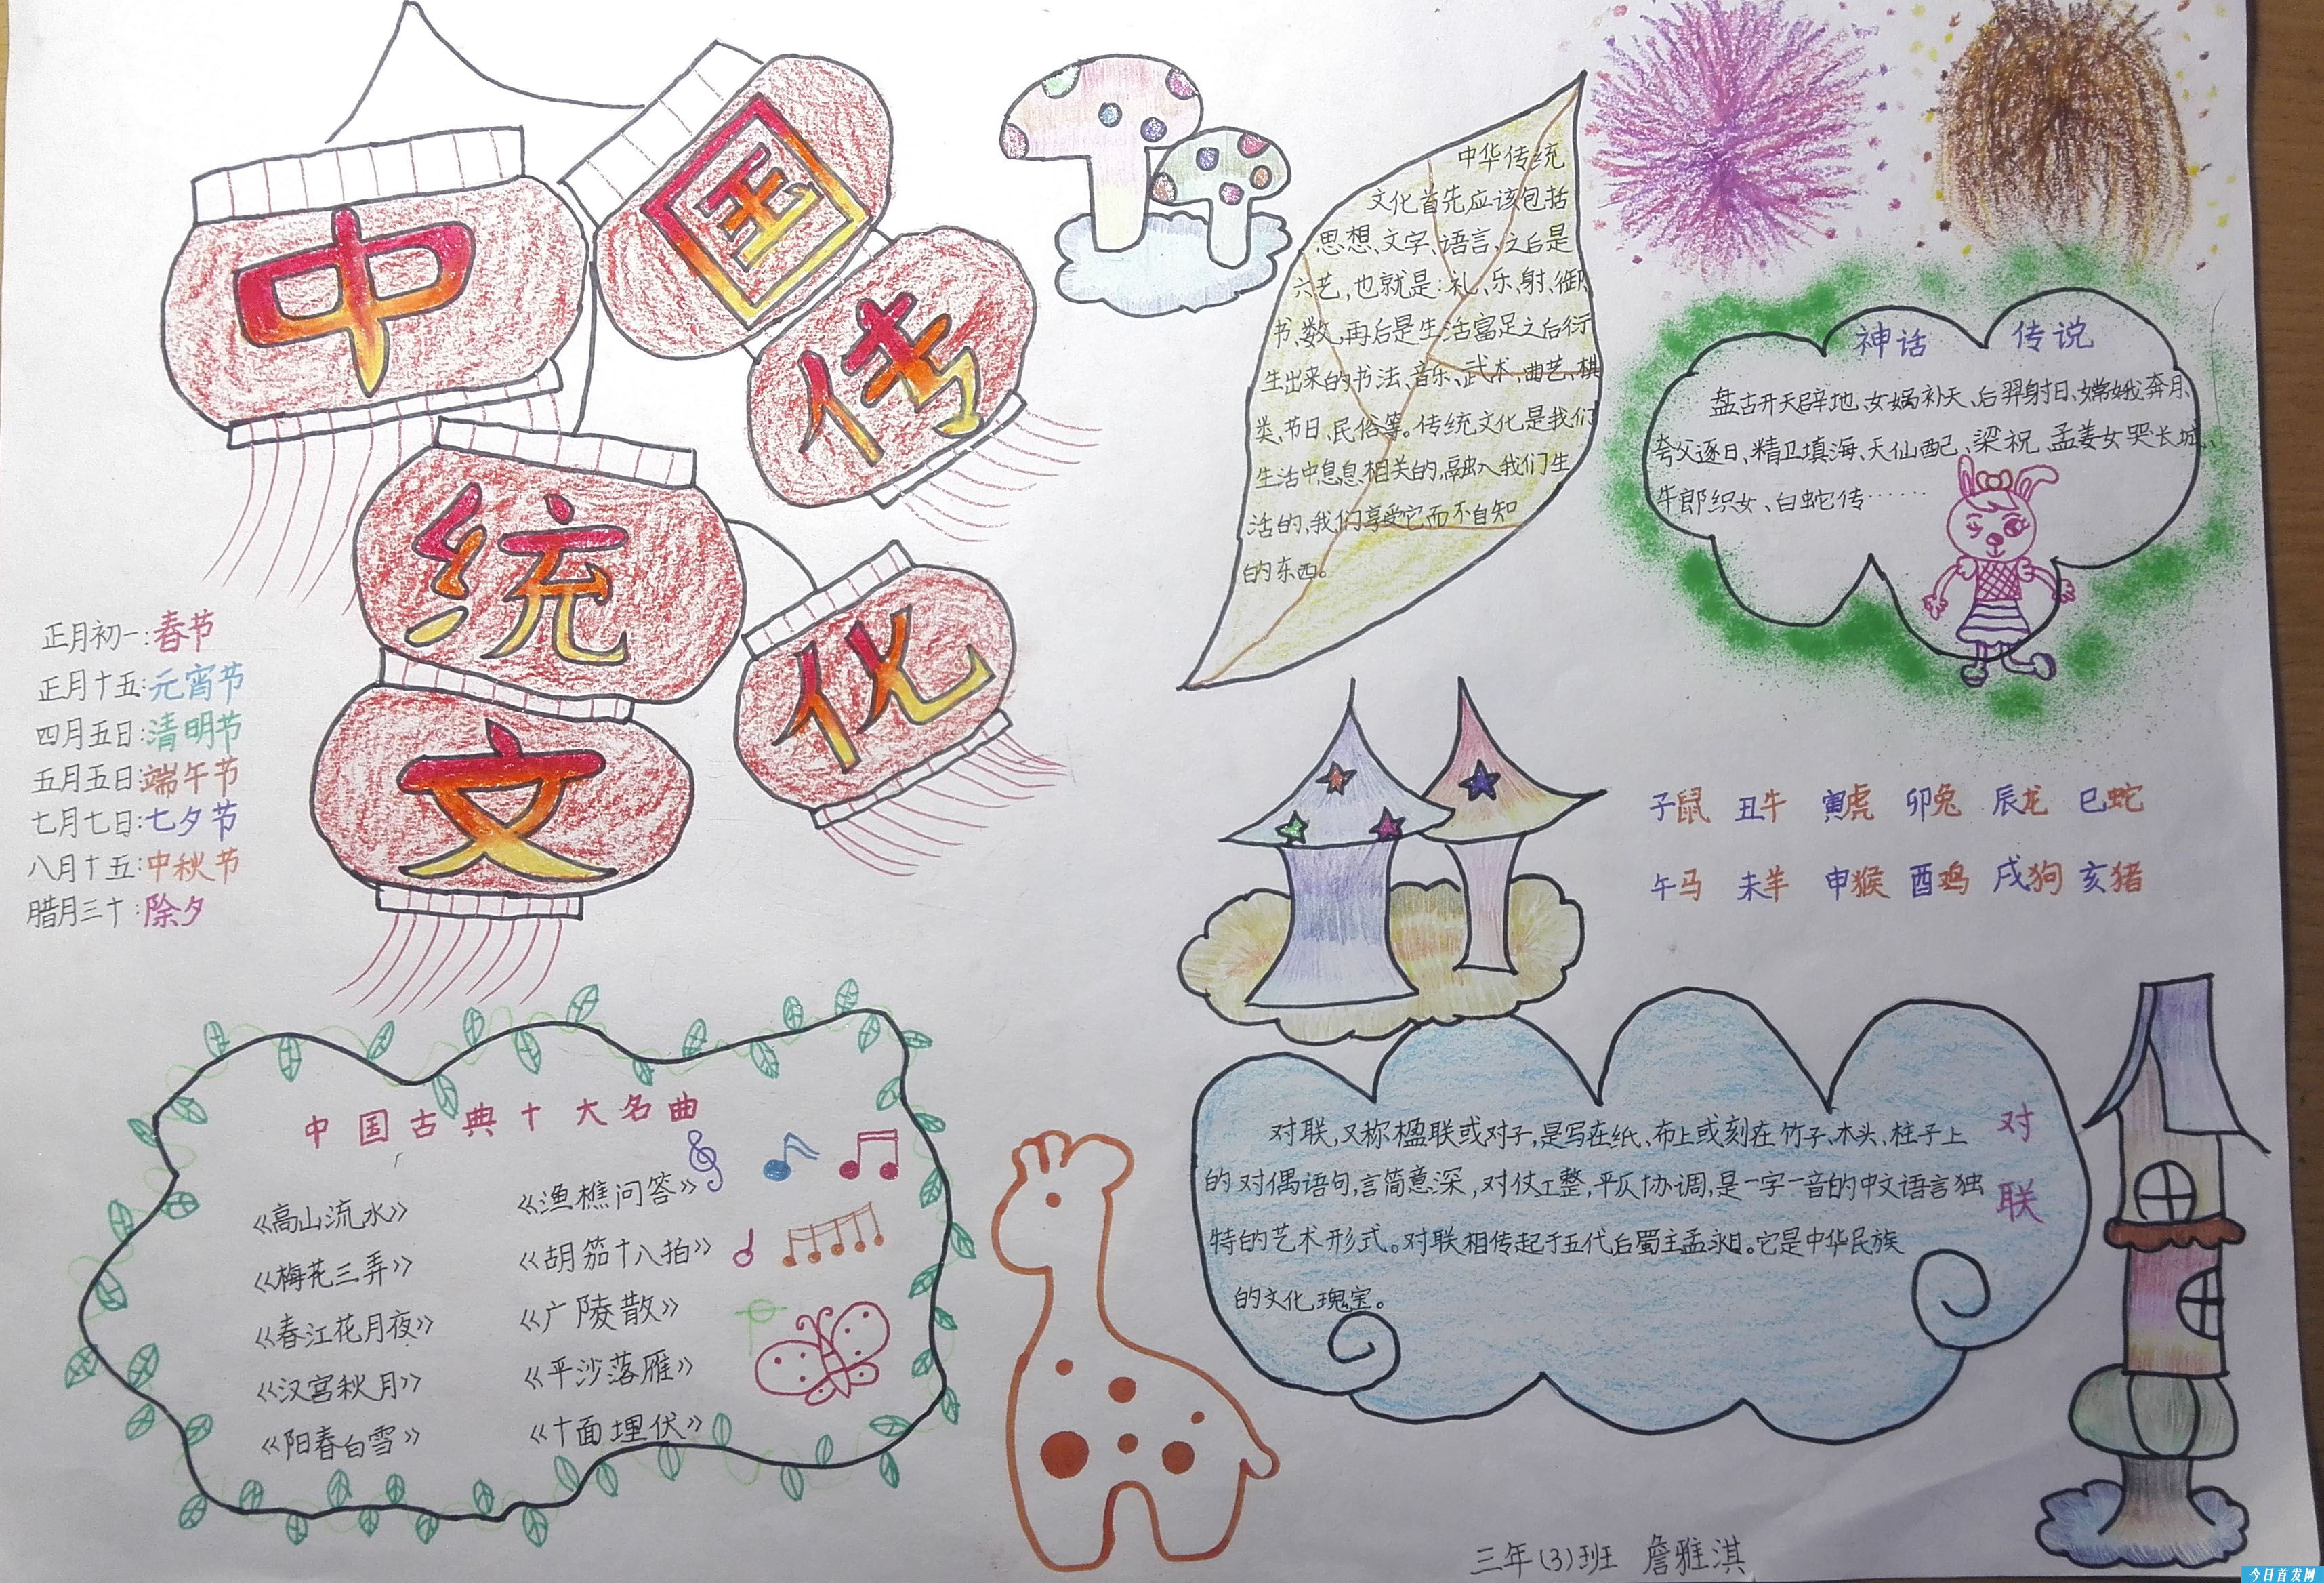 中国传统文化
正月初一:春节
正月十五:元宵节
四月五日:清明节
五月五日:端午节
七月七日:七夕节
八月十五:中秋节
腊月三十:除夕
中国古典十大名曲
《高山流水》
《梅花三弄》
《春江花月夜》
《汉宫秋月》
《阳春白雪》
《渔樵问答》
《胡笳十八拍》
《广陵散》
《平沙落雁》
《十面埋伏》
中华传统
文化首先应该包括
思想、文字、语言、之后是
六艺,也就是:礼、乐、射、御、
书、数,再后是生活富足之后衍
生出来的书法、音乐、武术、曲艺、棋
类、节日、民俗等。传统文化是我们
生活中息息相关的,融入我们生
活的,我们享受它而不自知
的东西。
神话 传说
盘古开天辟地、女娲补天、后羿射日、嫦娥奔月、
夸父逐日、精卫填海、天仙配、梁祝、孟姜女哭长城、
牛郎织女、白蛇传……
子鼠 丑牛 寅虎 卯兔 辰龙 巳蛇
午马 未羊 申猴 酉鸡 戌狗 亥猪
对联
对联,又称楹联或对子,是写在纸、布上或刻在竹子、木头、柱子上
的对偶语句,言简意深,对仗工整,平仄协调,是一字一音的中文语言独
特的艺术形式。对联相传起于五代后蜀主孟昶。它是中华民族
的文化瑰宝。
三年(3)班 詹雅淇
今日首发网